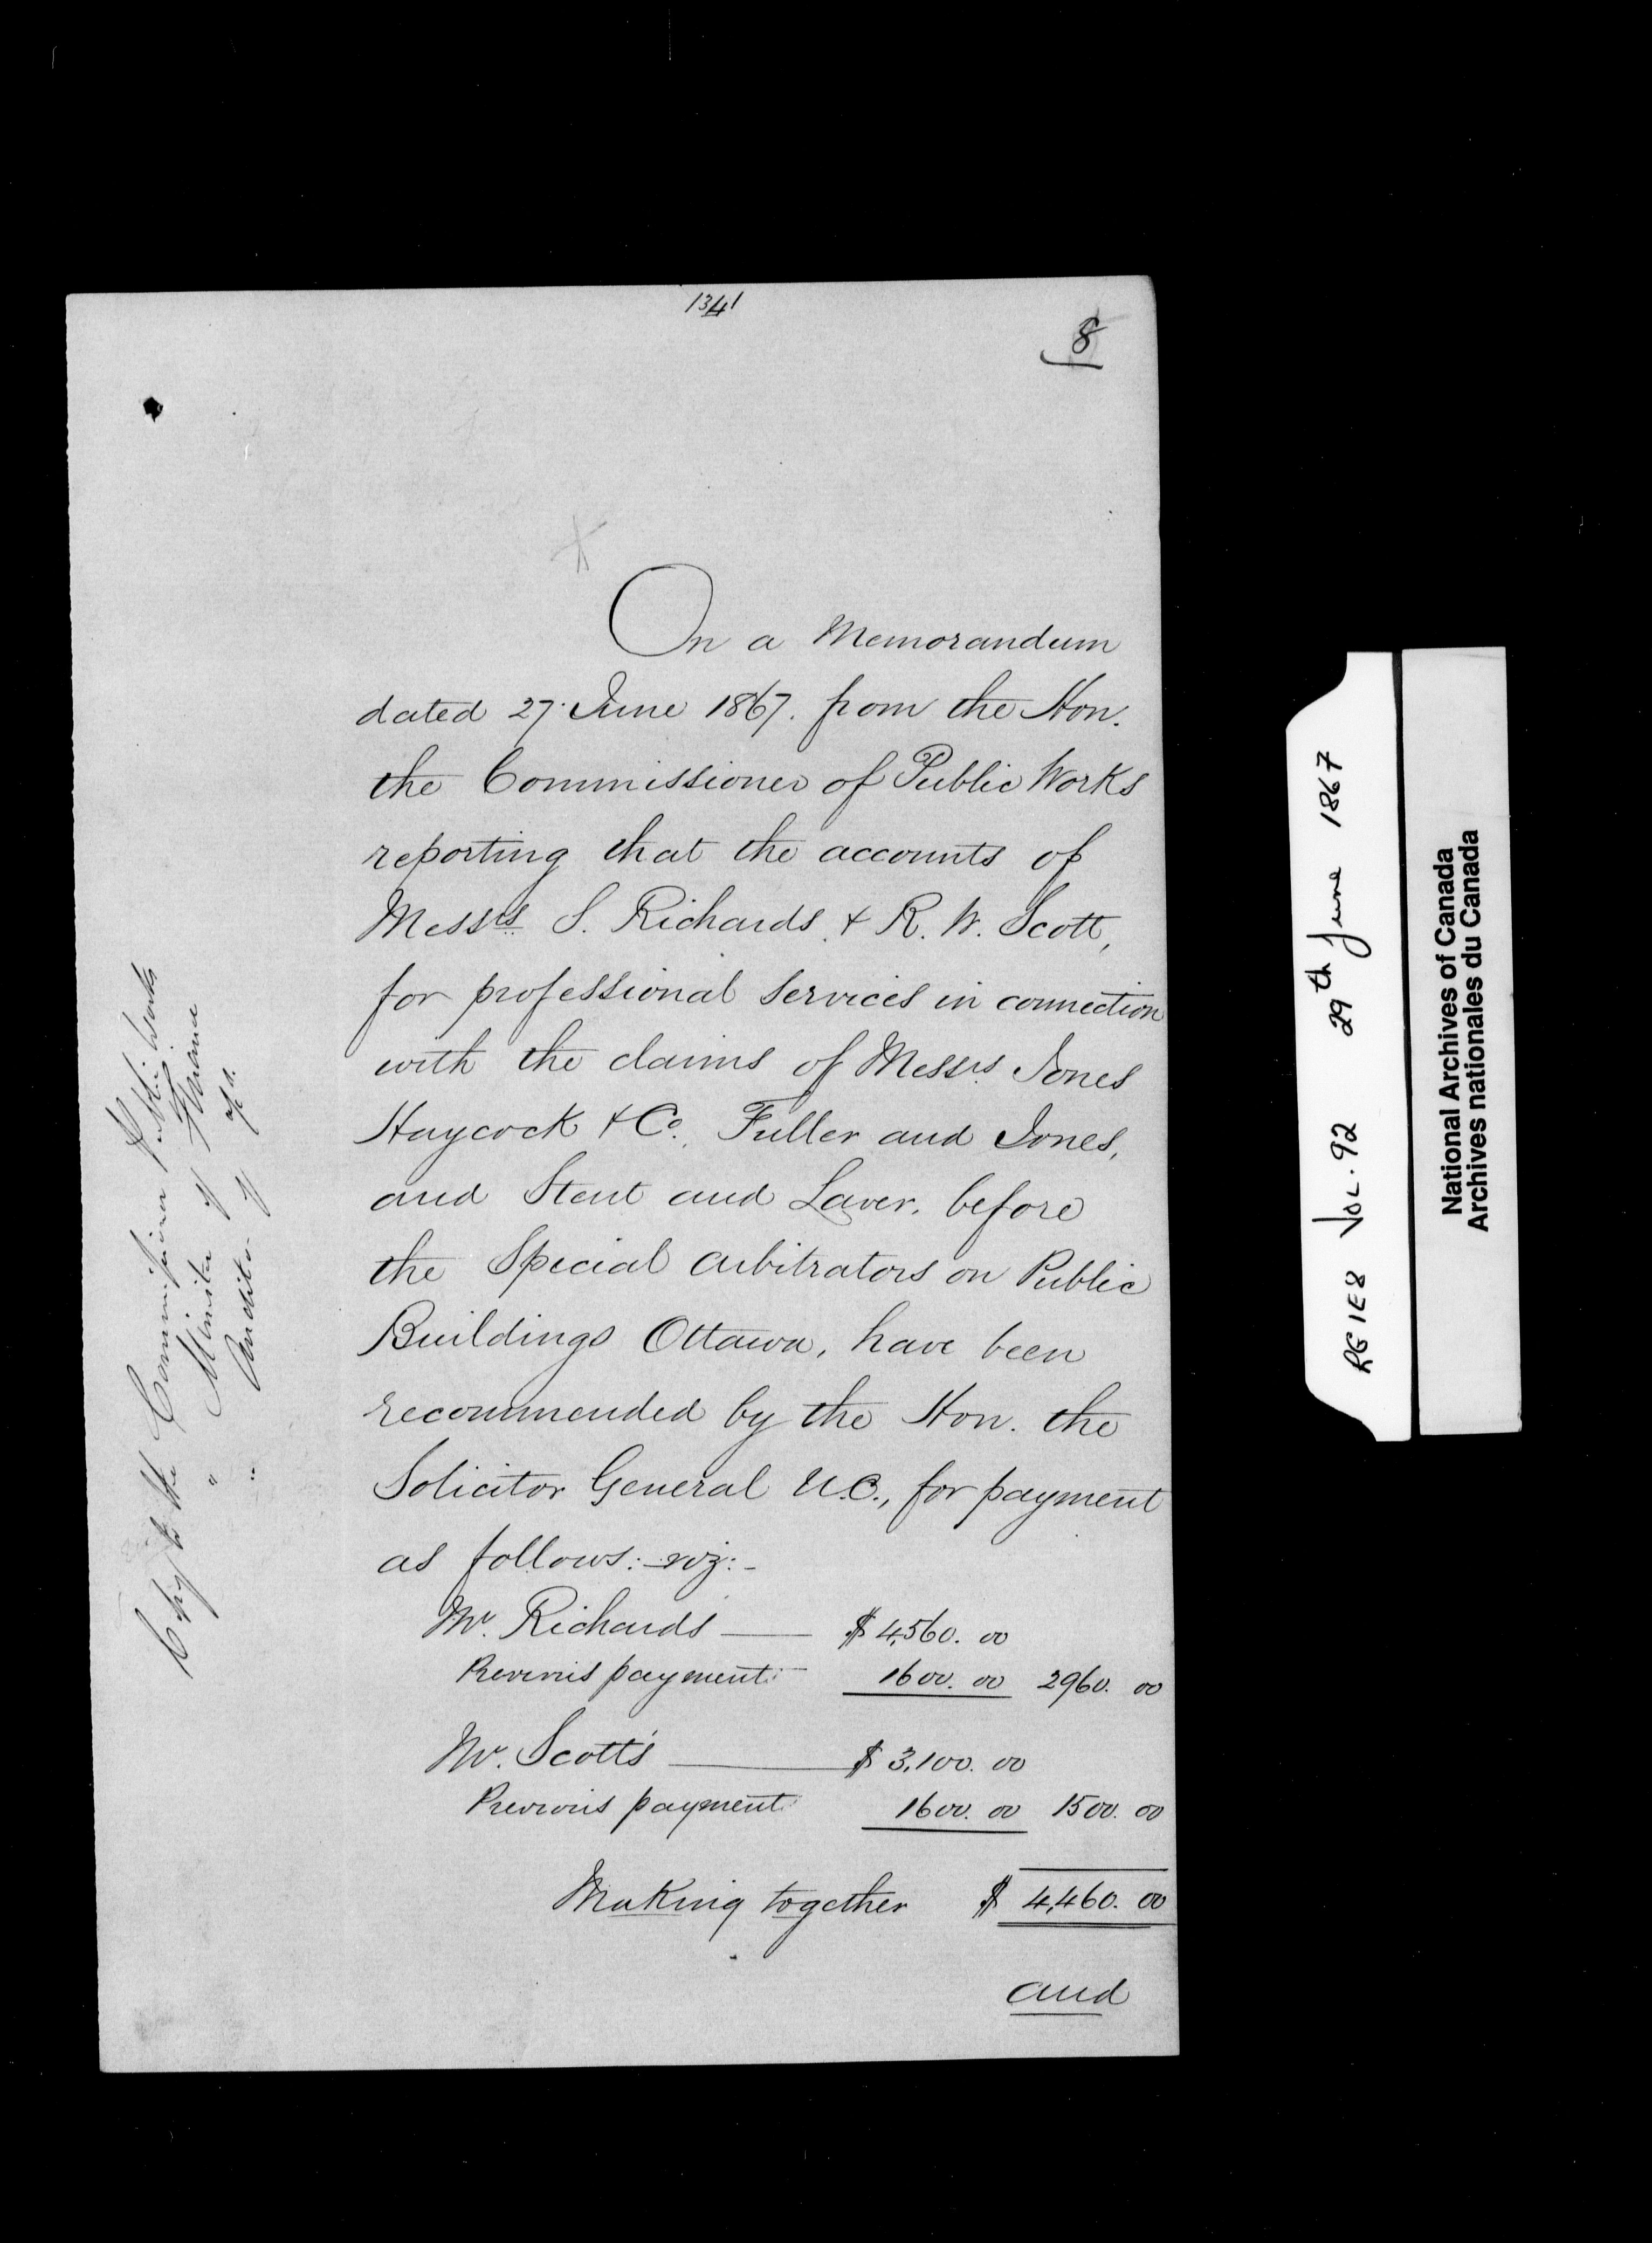 1341
8
On a Memorandum
dated 27. June 1867. from the Hon.
the Commissioner of Public Works
reporting that the accounts of
Messrs. S. Richards, & R. W. Scott,
for professional services in connection
with the claims of Messrs. Jones
Haycock & Co., Fuller and Jones,
and Stent and Laver, before
the Special Arbitrators on Public
Buildings Ottawa, have been
recommended by the Hon. the
Solicitor General U.C., for payment
as follows:-viz:-
Mr. Richards — $ 4,560. 00
Previous payment 1600. 00 2960. 00
Mr. Scott's — $ 3,100. 00
Previous payment 1600. 00 1500. 00
Making together $ 4,460. 00
and
Copy to the Commissioner Public Works
" Minister of Finance
" Auditor of
RG 1E8 VOL. 92 29th June 1867
National Archives of Canada
Archives nationales du Canada